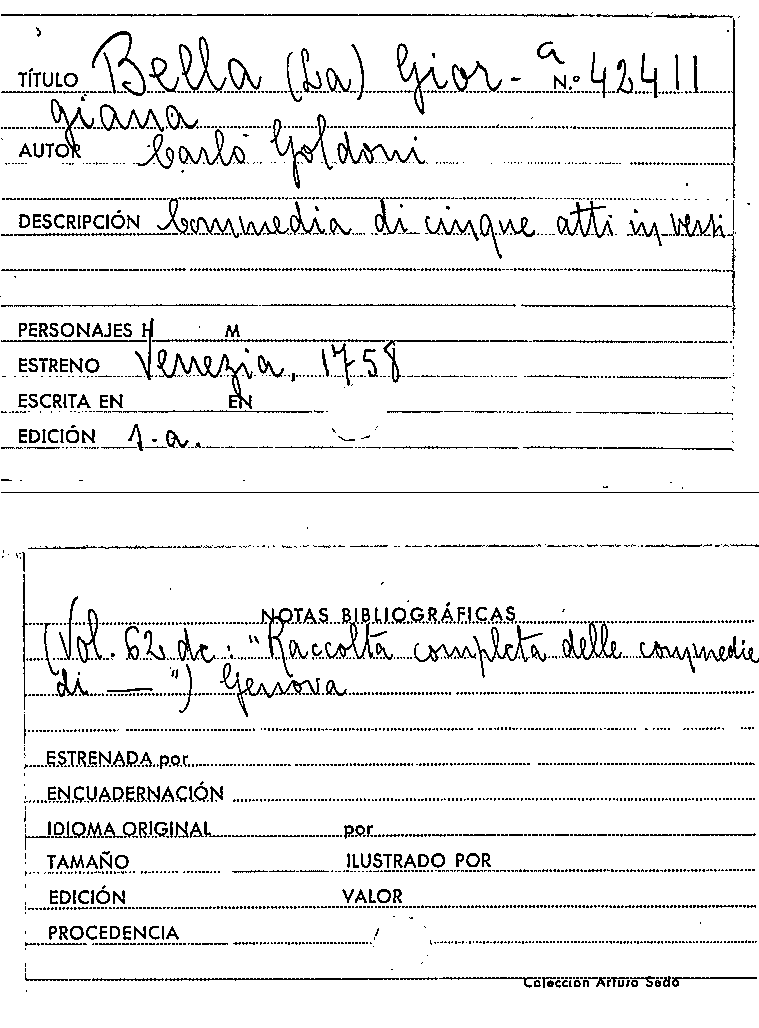 TÍTULO Bella (La) Gior- a N.º 42411
giana
AUTOR Carlo Goldoni
DESCRIPCIÓN Commedia di cinque atti in versi
PERSONAJES H M
ESTRENO Venezia, 1758
ESCRITA EN EN
EDICIÓN 1-a.
NOTAS BIBLIOGRÁFICAS
(Vol. 62 de: "Raccolta completa delle commedie
di — ") Genova
ESTRENADA por
ENCUADERNACIÓN
IDIOMA ORIGINAL por
TAMAÑO ILUSTRADO POR
EDICIÓN VALOR
PROCEDENCIA
Colección Arturo Sedó